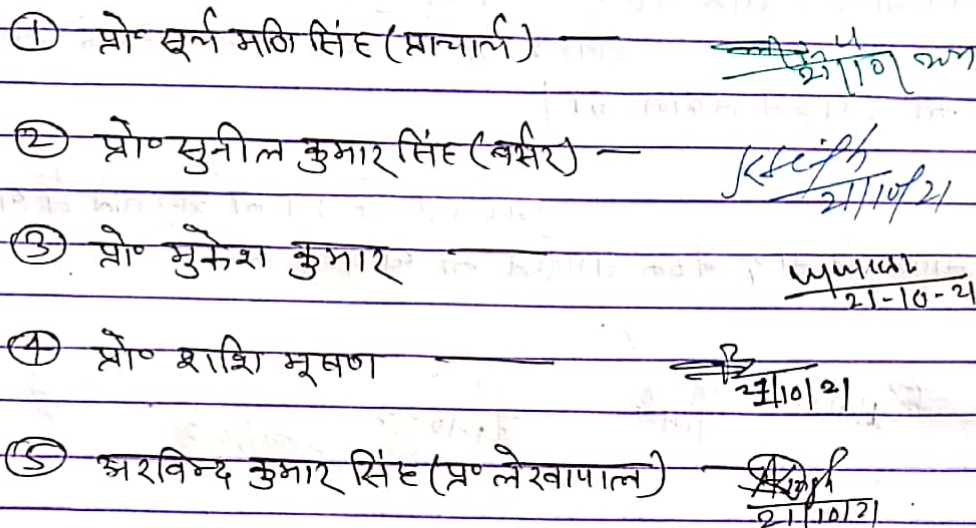 ① प्रो॰ सूर्य मणि सिंह (प्राचार्य) — 21/10/2021
② प्रो॰ सुनील कुमार सिंह (बर्सर) — 21/10/21
③ प्रो॰ मुकेश कुमार — 21-10-21
④ प्रो॰ शशि भूषण — 21/10/21
⑤ अरविन्द कुमार सिंह (प्र॰ लेखापाल) — 21/10/21